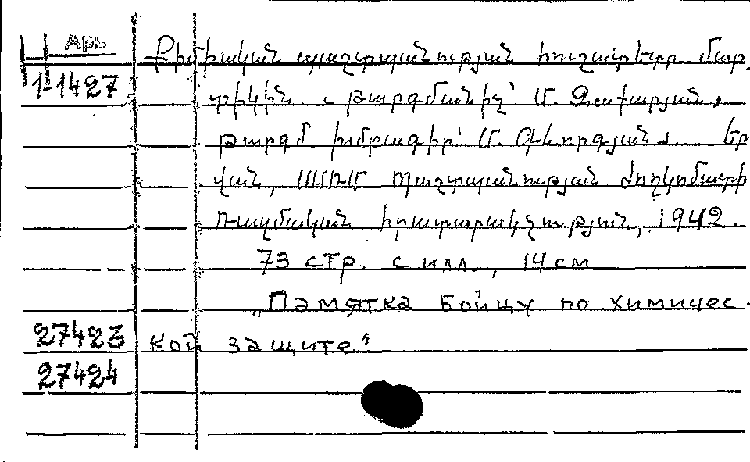 Арм
1-1427
Քիմիական պաշտպանության հուշատետր մար
տիկին. Թարգմանիչ՝ Մ. Զաքարյան.
թարգմ. խմբագիր՝ Մ. Գևորգյան. Եր
վան, ՍՍՌՄ Պաշտպանության Ժողկոմատի
Ռազմական հրատարակչություն, 1942.
73 стр. с илл., 14 см
„Памятка бойцу по химичес-
27423 кой защите"
27424